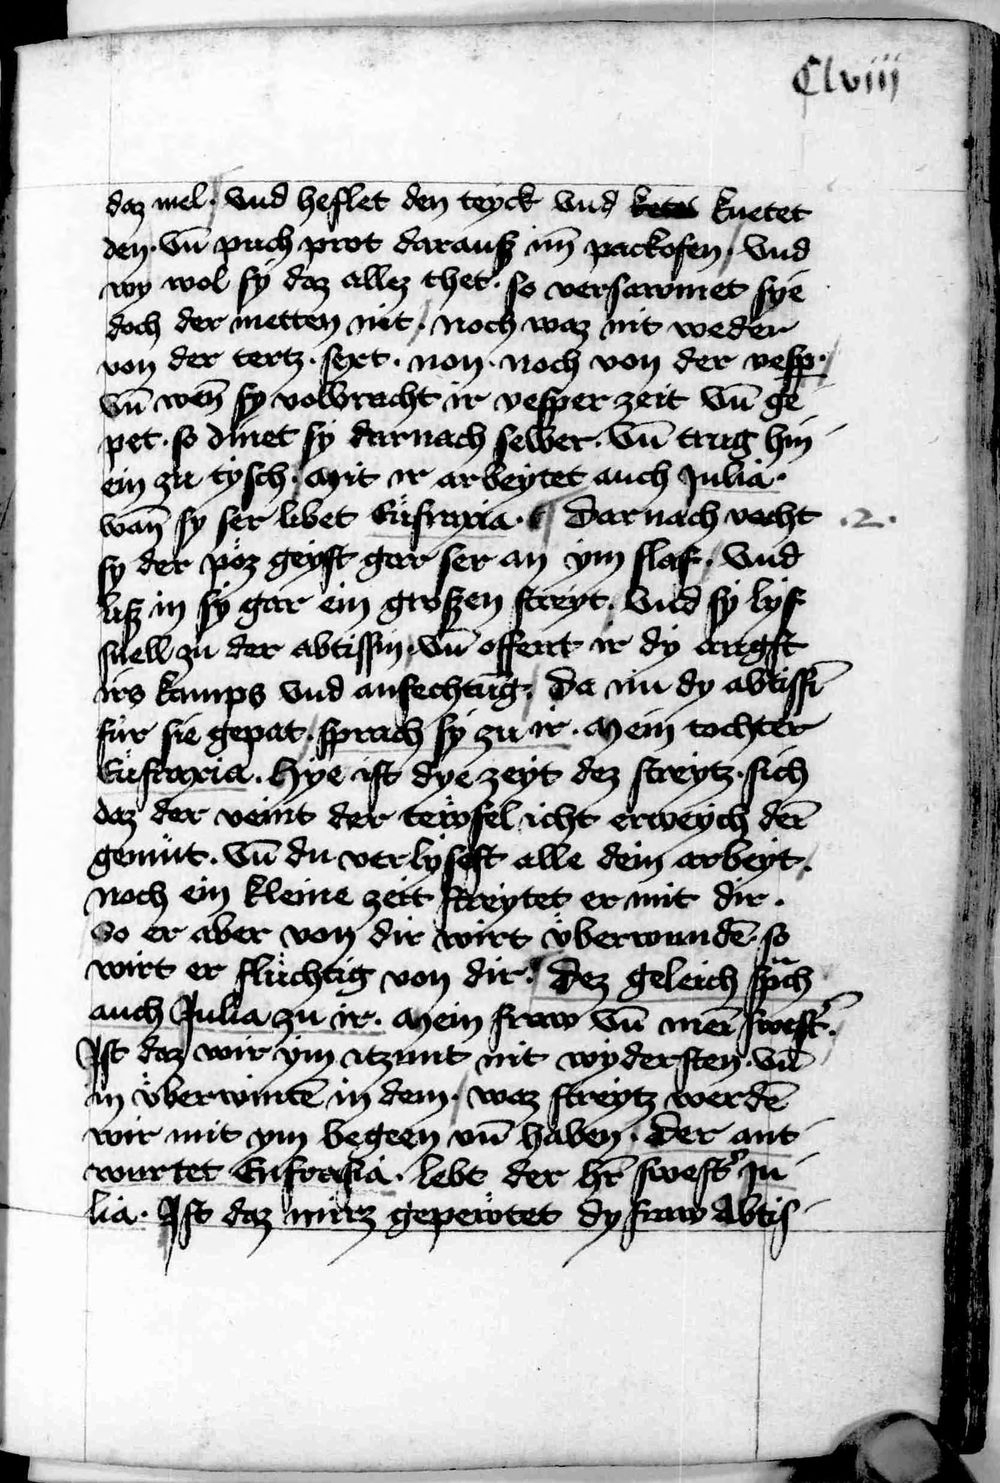 Clviii
daz mel. Vnd heflet den teyck vnd knetet
den. Vn̄ puch prot darausz im̄ packofen. Vnd
wy wol sy daz allez thet. so versawmet sye
doch der metten nit. noch waz nit weder
von der tertz. sext. non. noch von der vesp.
Vn̄ wen̄ sy volbracht ir vesper zeit Vn̄ ge
pet. so dinet sy darnach selber. Vn̄ trug hin
ein zu tysch. Mit ir arbeytet auch Julia.
wan̄ sy ser libet Eufraxia. Darnach vacht .2.
sy der pöz geyst gar ser an ym slaf. Vnd
lisz in sy gar ein groszen streyt. Vnd sy lyf
snell zu der abtissin. vn̄ offent ir dy angst
irs kamps vnd anfechtūg. Da nu dy abtissī
für sie gepat. sprach sy zu ir. Mein tochter
Eufraxia. Hye ist dye zeyt dez streytz. sich
daz der veint der tewfel icht erweych dei͞
gemüt. Vn̄ du verlysest alle dein arbeyt.
Noch ein kleine zeit streytet er mit dir.
So er aber von dir wirt vberwundē. so
wirt er flüchtig von dir. Dez geleich sp̄ch
auch Julia zu ir. Mein fraw Vn̄ mei͞ swest̄.
Ist daz wir ym itzunt nit wydersten. vn̄
in vberwintē in dem. waz streytz werdē
wir mit ym begeen vn̄ haben. Der ant
wurtet Eufrasia. lebt der hr̄ swest̄ Ju
lia. Ist daz mirz gepewtet dy fraw Abtis